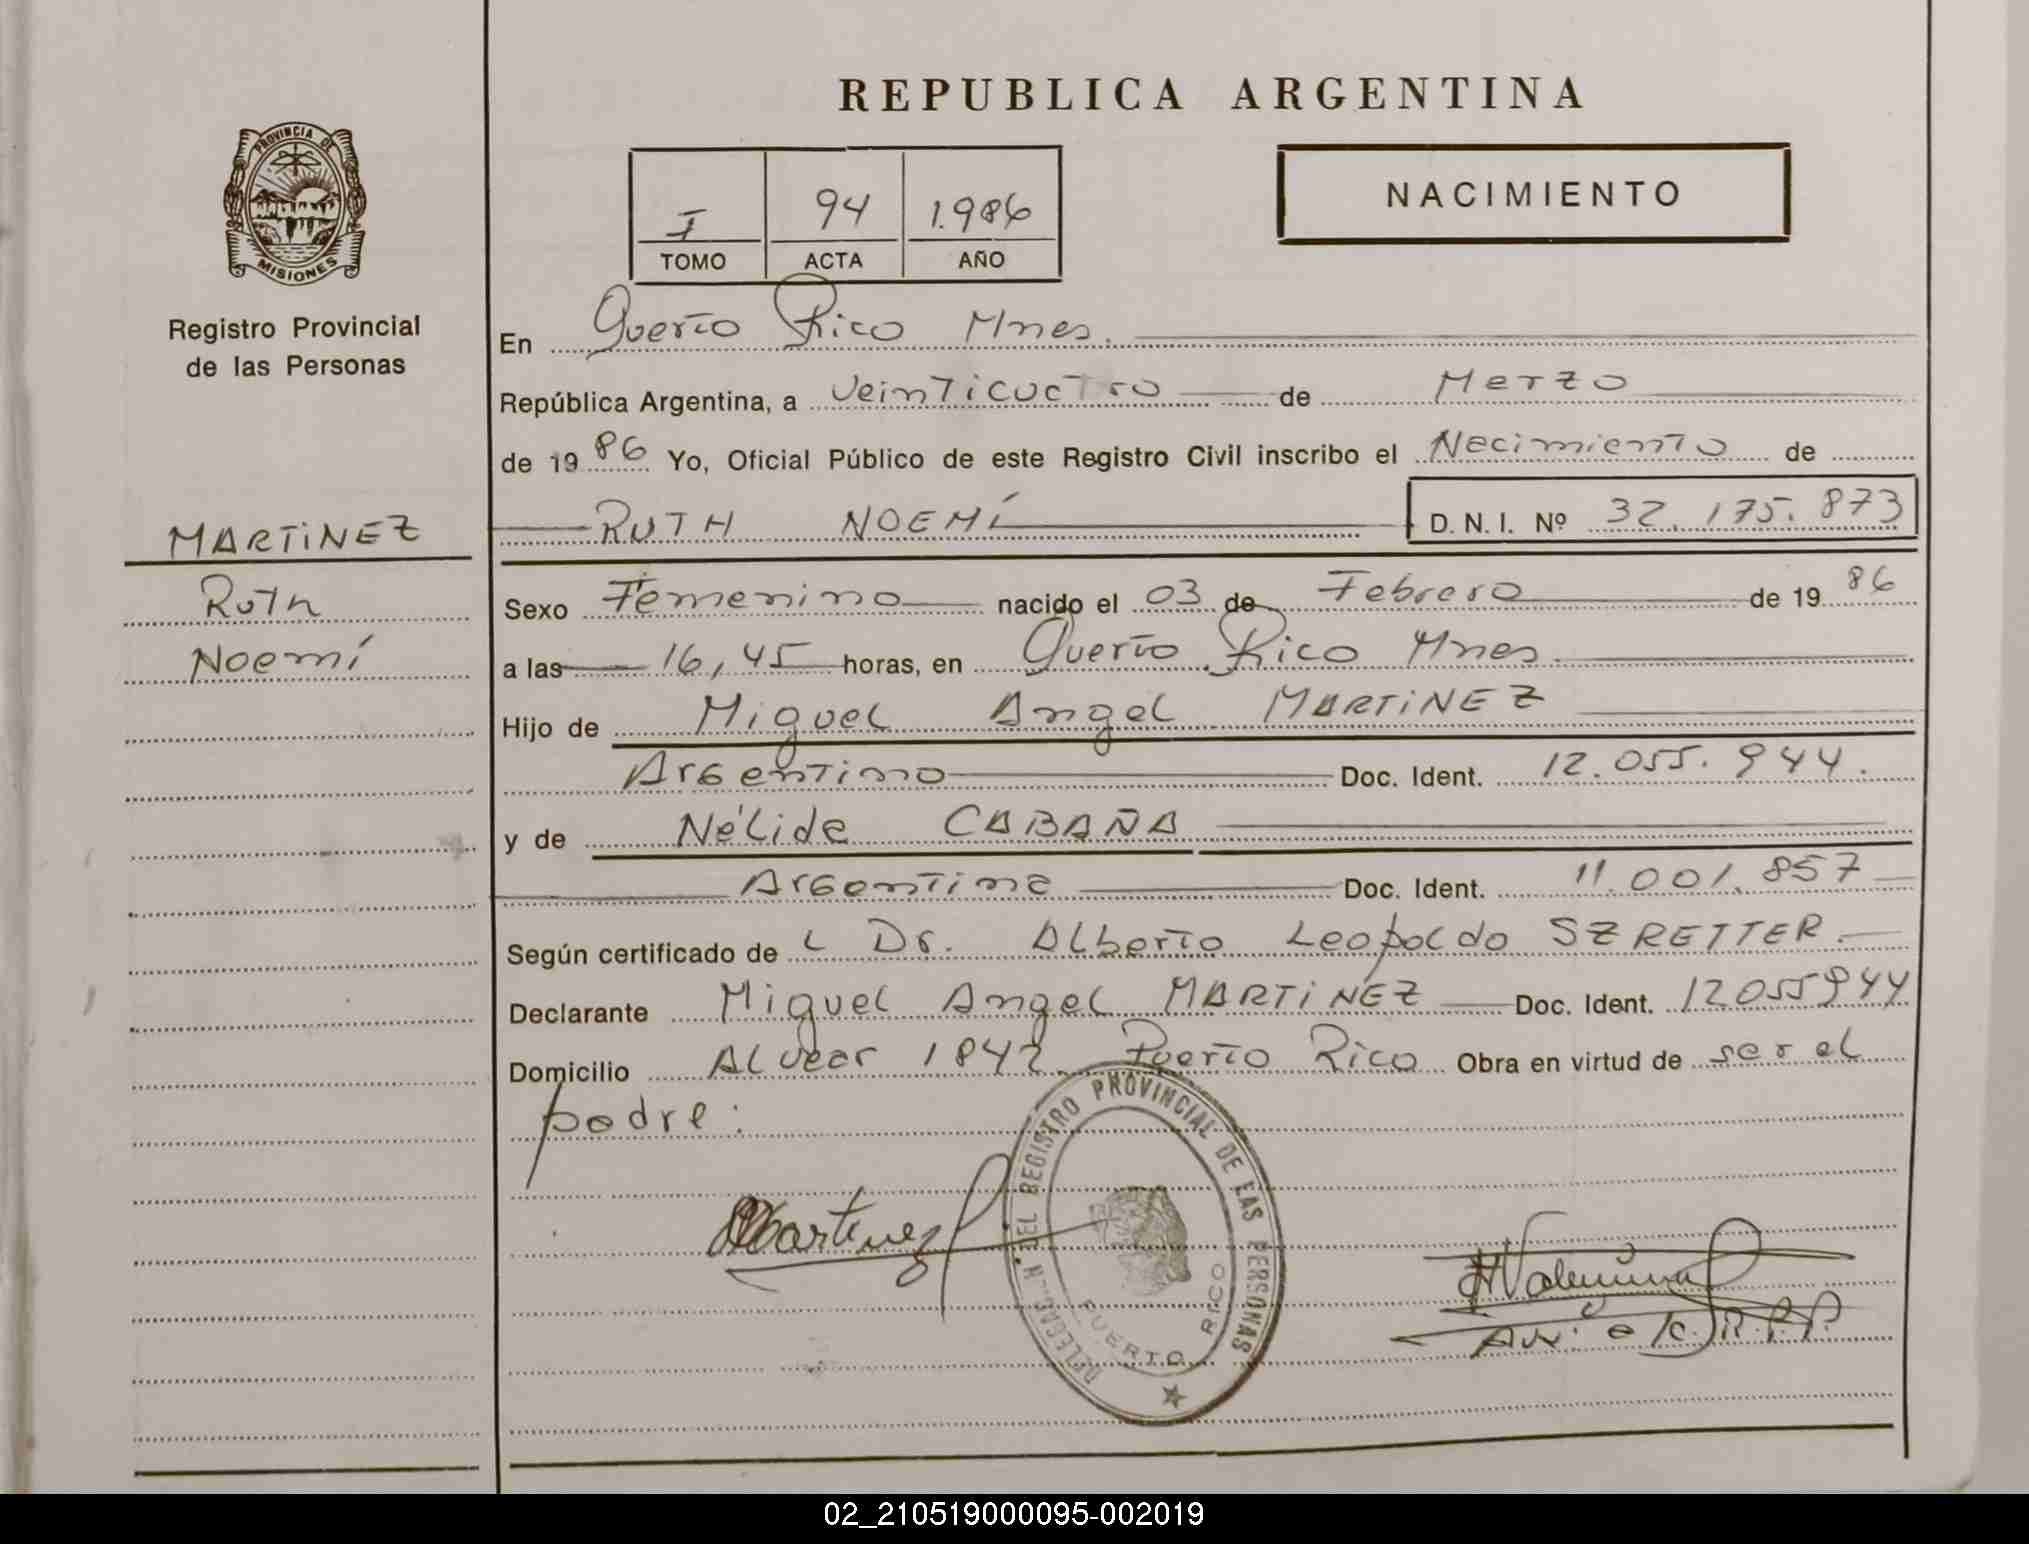 REPUBLICA ARGENTINA
PROVINCIA DE
MISIONES
Registro Provincial
de las Personas
NACIMIENTO
I 94 1.986
TOMO ACTA AÑO
En Puerto Rico Mnes.
República Argentina, a veinticuatro de Marzo
de 1986 Yo, Oficial Público de este Registro Civil inscribo el Nacimiento de
RUTH NOEMÍ D. N. I. Nº 32.175.873
MARTINEZ
Ruth
Noemí
Sexo Femenino nacido el 03 de Febrero de 1986
a las 16,45 horas, en Puerto Rico Mnes.
Hijo de Miguel Angel MARTINEZ
Argentino Doc. Ident. 12.055.944.
y de Nélida CABAÑA
Argentina Doc. Ident. 11.001.857
Según certificado de L Dr. Alberto Leopoldo SZRETTER.
Declarante Miguel Angel MARTINEZ Doc. Ident. 12055944
Domicilio Alvear 1842 Puerto Rico Obra en virtud de ser el
padre:
Martinez
DELEGACION DEL REGISTRO PROVINCIAL DE LAS PERSONAS
PUERTO RICO
02_210519000095-002019